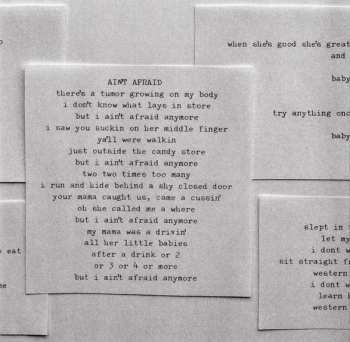 AIN'T AFRAID
there's a tumor growing on my body
i don't know what lays in store
but i ain't afraid anymore
i saw you suckin on her middle finger
ya'll were walkin
just outside the candy store
but i ain't afraid anymore
two two times too many
i run and hide behind a shy closed door
your mama caught us, came a cussin'
oh she called me a whore
but i ain't afraid anymore
my mama was a drivin'
all her little babies
after a drink or 2
or 3 or 4 or more
but i ain't afraid anymore
when she's good she's great
and
baby
try anything once
baby
slept in
let my
i dont w
sit straight f
western
i dont w
learn
western
s eat